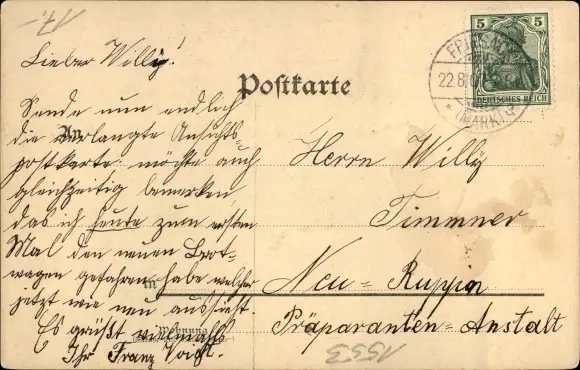 17.-
Lieber Willy!
Postkarte
Sende nun endlich
die verlangte Ansichts-
postkarte. möchte auch
gleichzeitig bemerken,
das ich heute zum ersten
Mal den neuen Brot-
wagen gefahren habe welcher
jetzt wie neu aussieht.
Es grüßt vielmals
Ihr Franz Voigt.
An
in
Wohnung
Herrn Willy
Timmner
Neu-Ruppin
Präparanten-Anstalt
1553
5 5
DEUTSCHES REICH
22.8.
(MARK)